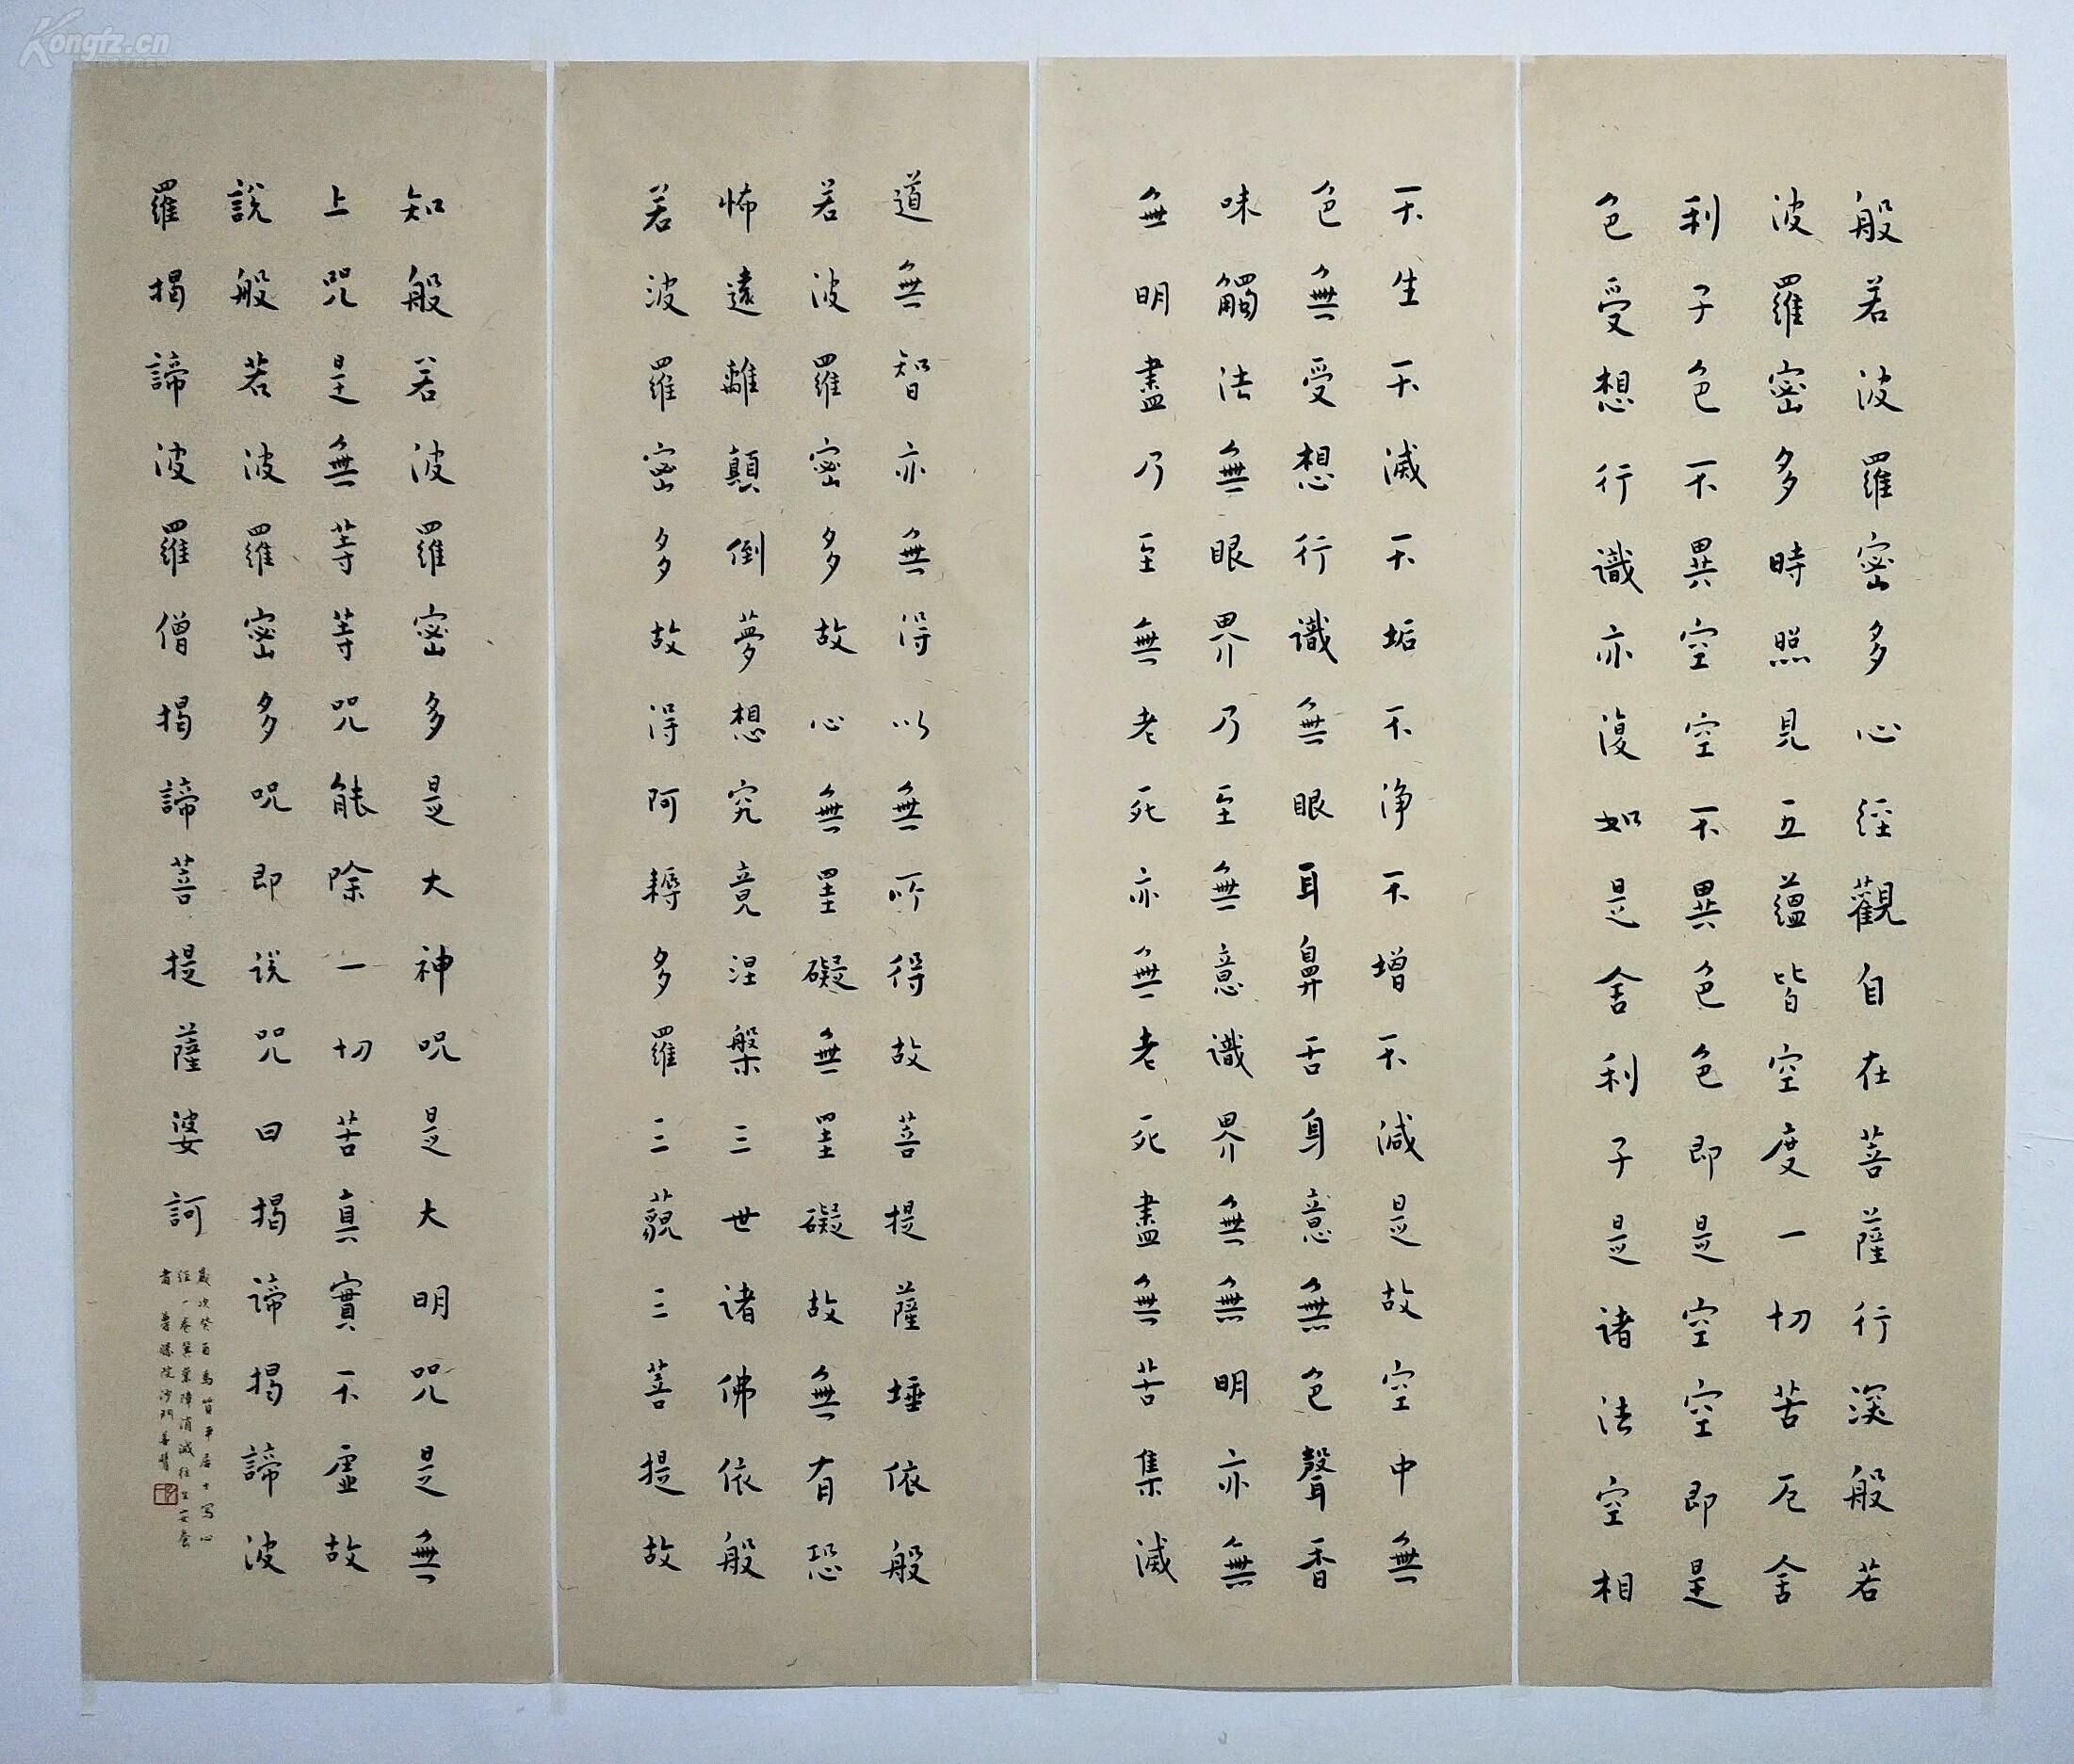 Kongfz.cn
般若波羅密多心經觀自在菩薩行深般若
波羅密多時照見五蘊皆空度一切苦厄舍
利子色不異空空不異色色即是空空即是
色受想行識亦復如是舍利子是諸法空相
不生不滅不垢不淨不增不減是故空中無
色無受想行識無眼耳鼻舌身意無色聲香
味觸法無眼界乃至無意識界無無明亦無
無明盡乃至無老死亦無老死盡無苦集滅
道無智亦無得以無所得故菩提薩埵依般
若波羅密多故心無罣礙無罣礙故無有恐
怖遠離顛倒夢想究竟涅槃三世諸佛依般
若波羅密多故得阿耨多羅三藐三菩提故
知般若波羅密多是大神呪是大明咒是無
上咒是無等等咒能除一切苦真實不虛故
說般若波羅密多呪即說咒曰揭諦揭諦波
羅揭諦波羅僧揭諦菩提薩婆訶
歲次癸酉為平居士寫心
經一卷冀業障消滅往生安養
者尊勝院沙門善